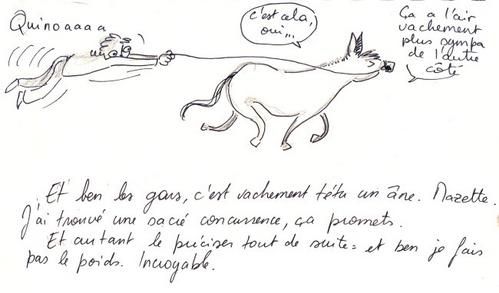 Quinoaaaa
c'est cela,
oui...
Ça a l'air
vachement
plus sympa
de l'autre
côté
Et ben les gars, c'est vachement têtu un âne. Mazette.
J'ai trouvé une sacré concurrence, ça promets.
Et autant le préciser tout de suite : et ben je fais
pas le poids. Incroyable.